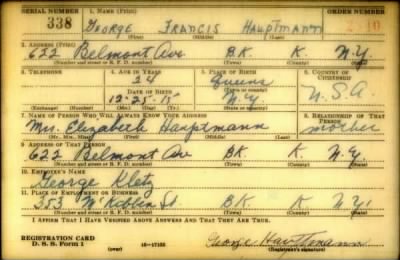 SERIAL NUMBER 1. NAME (Print) ORDER NUMBER
338 GEORGE FRANCIS HAUPTMANN
(First) (Middle) (Last)
2. ADDRESS (Print)
622 Belmont Ave BK K N.Y.
(Number and street or R. F. D. number) (Town) (County) (State)
3. TELEPHONE 4. AGE IN YEARS 5. PLACE OF BIRTH 6. COUNTRY OF CITIZENSHIP
24 Queens
DATE OF BIRTH (Town or county)
12-25-15 N.Y U.S.A.
(Exchange) (Number) (Mo.) (Day) (Yr.) (State or country)
7. NAME OF PERSON WHO WILL ALWAYS KNOW YOUR ADDRESS 8. RELATIONSHIP OF THAT PERSON
Mrs. Elizabeth Hauptmann mother
(Mr., Mrs., Miss) (First) (Middle) (Last)
9. ADDRESS OF THAT PERSON
622 Belmont Ave BK. K. N.Y.
(Number and street or R. F. D. number) (Town) (County) (State)
10. EMPLOYER'S NAME
George Klotz
11. PLACE OF EMPLOYMENT OR BUSINESS
353 McKibbin St. BK K N.Y.
(Number and street or R. F. D. number) (Town) (County) (State)
I AFFIRM THAT I HAVE VERIFIED ABOVE ANSWERS AND THAT THEY ARE TRUE.
REGISTRATION CARD
D. S. S. Form 1 (over) 16-17105 George Hauptmann
(Registrant's signature)